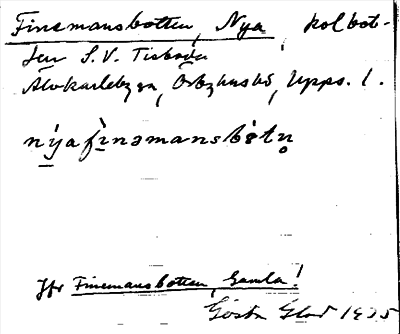 Finemansbotten, Nya, kolbot-
ten S.V. Tisboda
Älvkarleby sn, Örbyhus hd, Upps. l.
nýafìnəmansbȯtn̥
Jfr Finemansbotten, Gamla!
Gösta Glad 1935